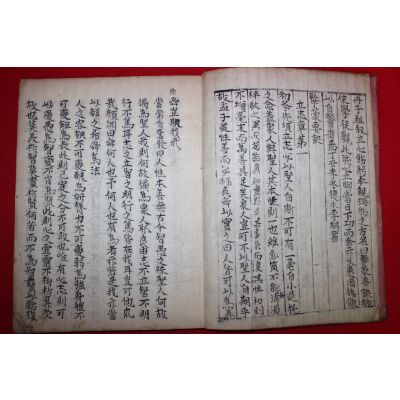 冊子粗叙立心飭躬奉親接物之方名曰擊蒙要訣欲
使學徒觀此洗心立脚當日下功而余亦久患因循欲
以自警省焉丁丑季冬德水李珥書
擊蒙要訣
立志章第一
初學先須立志必以聖人自期不可有一毫自小退托
之念蓋衆人與聖人其本性則一也雖氣質不能無淸濁
粹駁之異而苟能眞知實踐去其舊染而復其性初則
不增毫末而萬善具足矣衆人豈可不以聖人自期乎
故孟子道性善而必稱堯舜以實之曰人皆可以爲堯
舜豈欺我哉
當常自奮發曰人性本善無古今智愚之殊聖人何故
獨爲聖人我則何故獨爲衆人耶良由志不立智不明
行不篤耳志之立智之明行之篤皆在我耳豈可他求
哉顔淵曰舜何人也予何人也有爲者亦若是我亦當
以顔之希舜爲法
人之容貌不可變醜爲姸膂力不可變弱爲強身體不
可變短爲長此則已定之分不可改也惟有心志則可
以變愚爲智變不肖爲賢此則心之虛靈不拘於稟受
故也莫美於智莫貴於賢何苦而不爲賢智以虧損